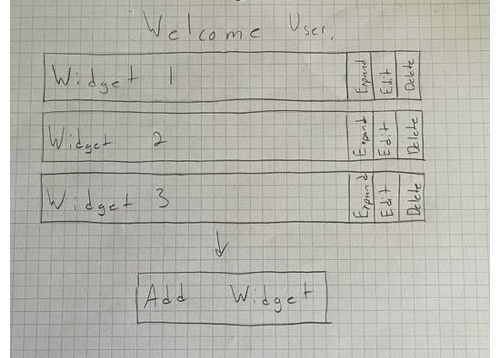 Welcome User,
Widget 1 Expand Edit Delete
Widget 2 Expand Edit Delete
Widget 3 Expand Edit Delete
Add Widget